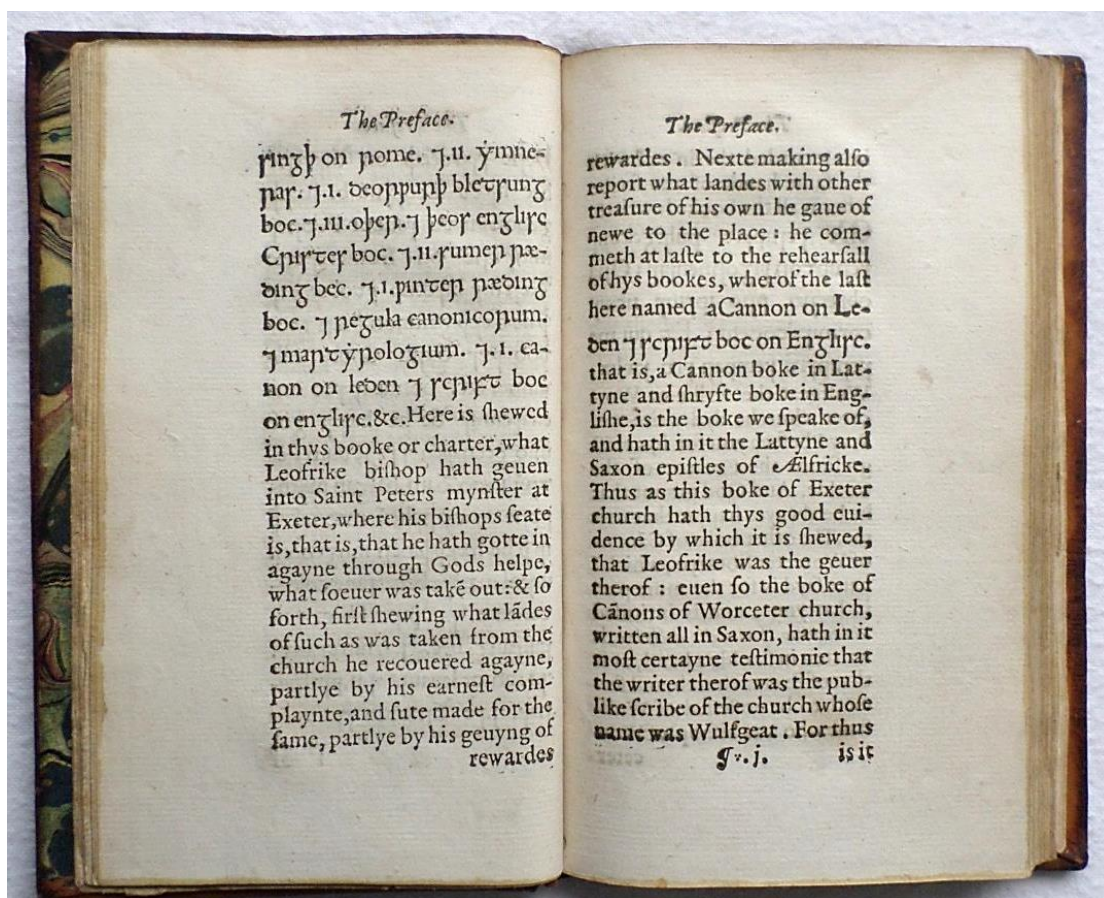 The Preface.
singþ on rome. ⁊.ii. ẏmne-
ras. ⁊.i. deorƿurþ bletsung
boc.⁊.iii.oþer.⁊ þeos englisc
Cristes boc. ⁊.ii.sumer ræ-
ding bec. ⁊.i.ƿinter ræding
boc. ⁊ regula canonicorum.
⁊ martẏrologium. ⁊.i. ca-
non on leden ⁊ script boc
on englisc.&c.Here is ſhewed
in thys booke or charter,what
Leofrike biſhop hath geuen
into Saint Peters mynſter at
Exeter,where his biſhops ſeate
is,that is,that he hath gotte in
agayne through Gods helpe,
what ſoeuer was takē out:& ſo
forth, firſt ſhewing what lādes
of ſuch as was taken from the
church he recouered agayne,
partlye by his earneſt com-
playnte,and ſute made for the
ſame, partlye by his geuyng of
rewardes
The Preface.
rewardes. Nexte making alſo
report what landes with other
treaſure of his own he gaue of
newe to the place: he com-
meth at laſte to the rehearſall
of hys bookes, wherof the laſt
here named a Cannon on Le-
den ⁊ script boc on Englisc.
that is,a Cannon boke in Lat-
tyne and ſhryfte boke in Eng-
liſhe,is the boke we ſpeake of,
and hath in it the Lattyne and
Saxon epiſtles of Ælfricke.
Thus as this boke of Exeter
church hath thys good eui-
dence by which it is ſhewed,
that Leofrike was the geuer
therof: euen ſo the boke of
Cānons of Worceter church,
written all in Saxon, hath in it
moſt certayne teſtimonie that
the writer therof was the pub-
like ſcribe of the church whoſe
name was Wulfgeat. For thus
is it